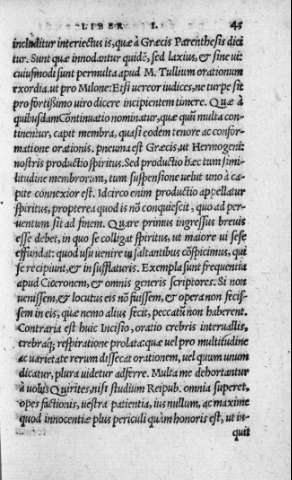 LIBER I. 45
includitur interiectus is, quæ à Græcis Parenthesis dici
tur. Sunt quæ innodantur quidē, sed laxius, et sine ui:
cuiusmodi sunt permulta apud M. Tullium orationum
exordia. ut pro Milone: Etsi uereor iudices, ne turpe sit
pro fortissimo uiro dicere incipientem timere. Quæ à
quibusdam Continuatio nominatur, quæ quū multa con-
tinentur, capit membra, quasi eodem tenore ac confor-
matione orationis. pneuma est Græcis, ut Hermogeni:
nostris productio spiritus. Sed productio hæc tum simi-
litudine membrorum, tum suspensione uelut uno à ca-
pite connexior est. Idcirco enim productio appellatur
spiritus, propterea quod is nō conquiescit, quo ad per-
uentum sit ad finem. Quare primus ingressus breuis
esse debet, in quo se colligat spiritus, ut maiore ui sese
effundat: quod usu uenire in saltantibus cōspicimus, qui
se recipiunt, et in sufflaturis. Exempla sunt frequentia
apud Ciceronem, et omnis generis scriptores: Si non
uenissem, et locutus eis nō fuissem, et opera non fecis-
sem in eis, quæ nemo alius fecit, peccatū non haberent.
Contraria est huic Incisio, oratio crebris interuallis,
crebraq; respiratione prolata: quæ uel pro multitudine
ac uarietate rerum dissecat orationem, uel quum unum
dicatur, plura uidetur adferre. Multa me dehortantur
à uobis Quirites, nisi studium Reipub. omnia superet,
opes factionis, uestra patientia, ius nullum, ac maxime
quod innocentiæ plus periculi quàm honoris est, ut in-
quit